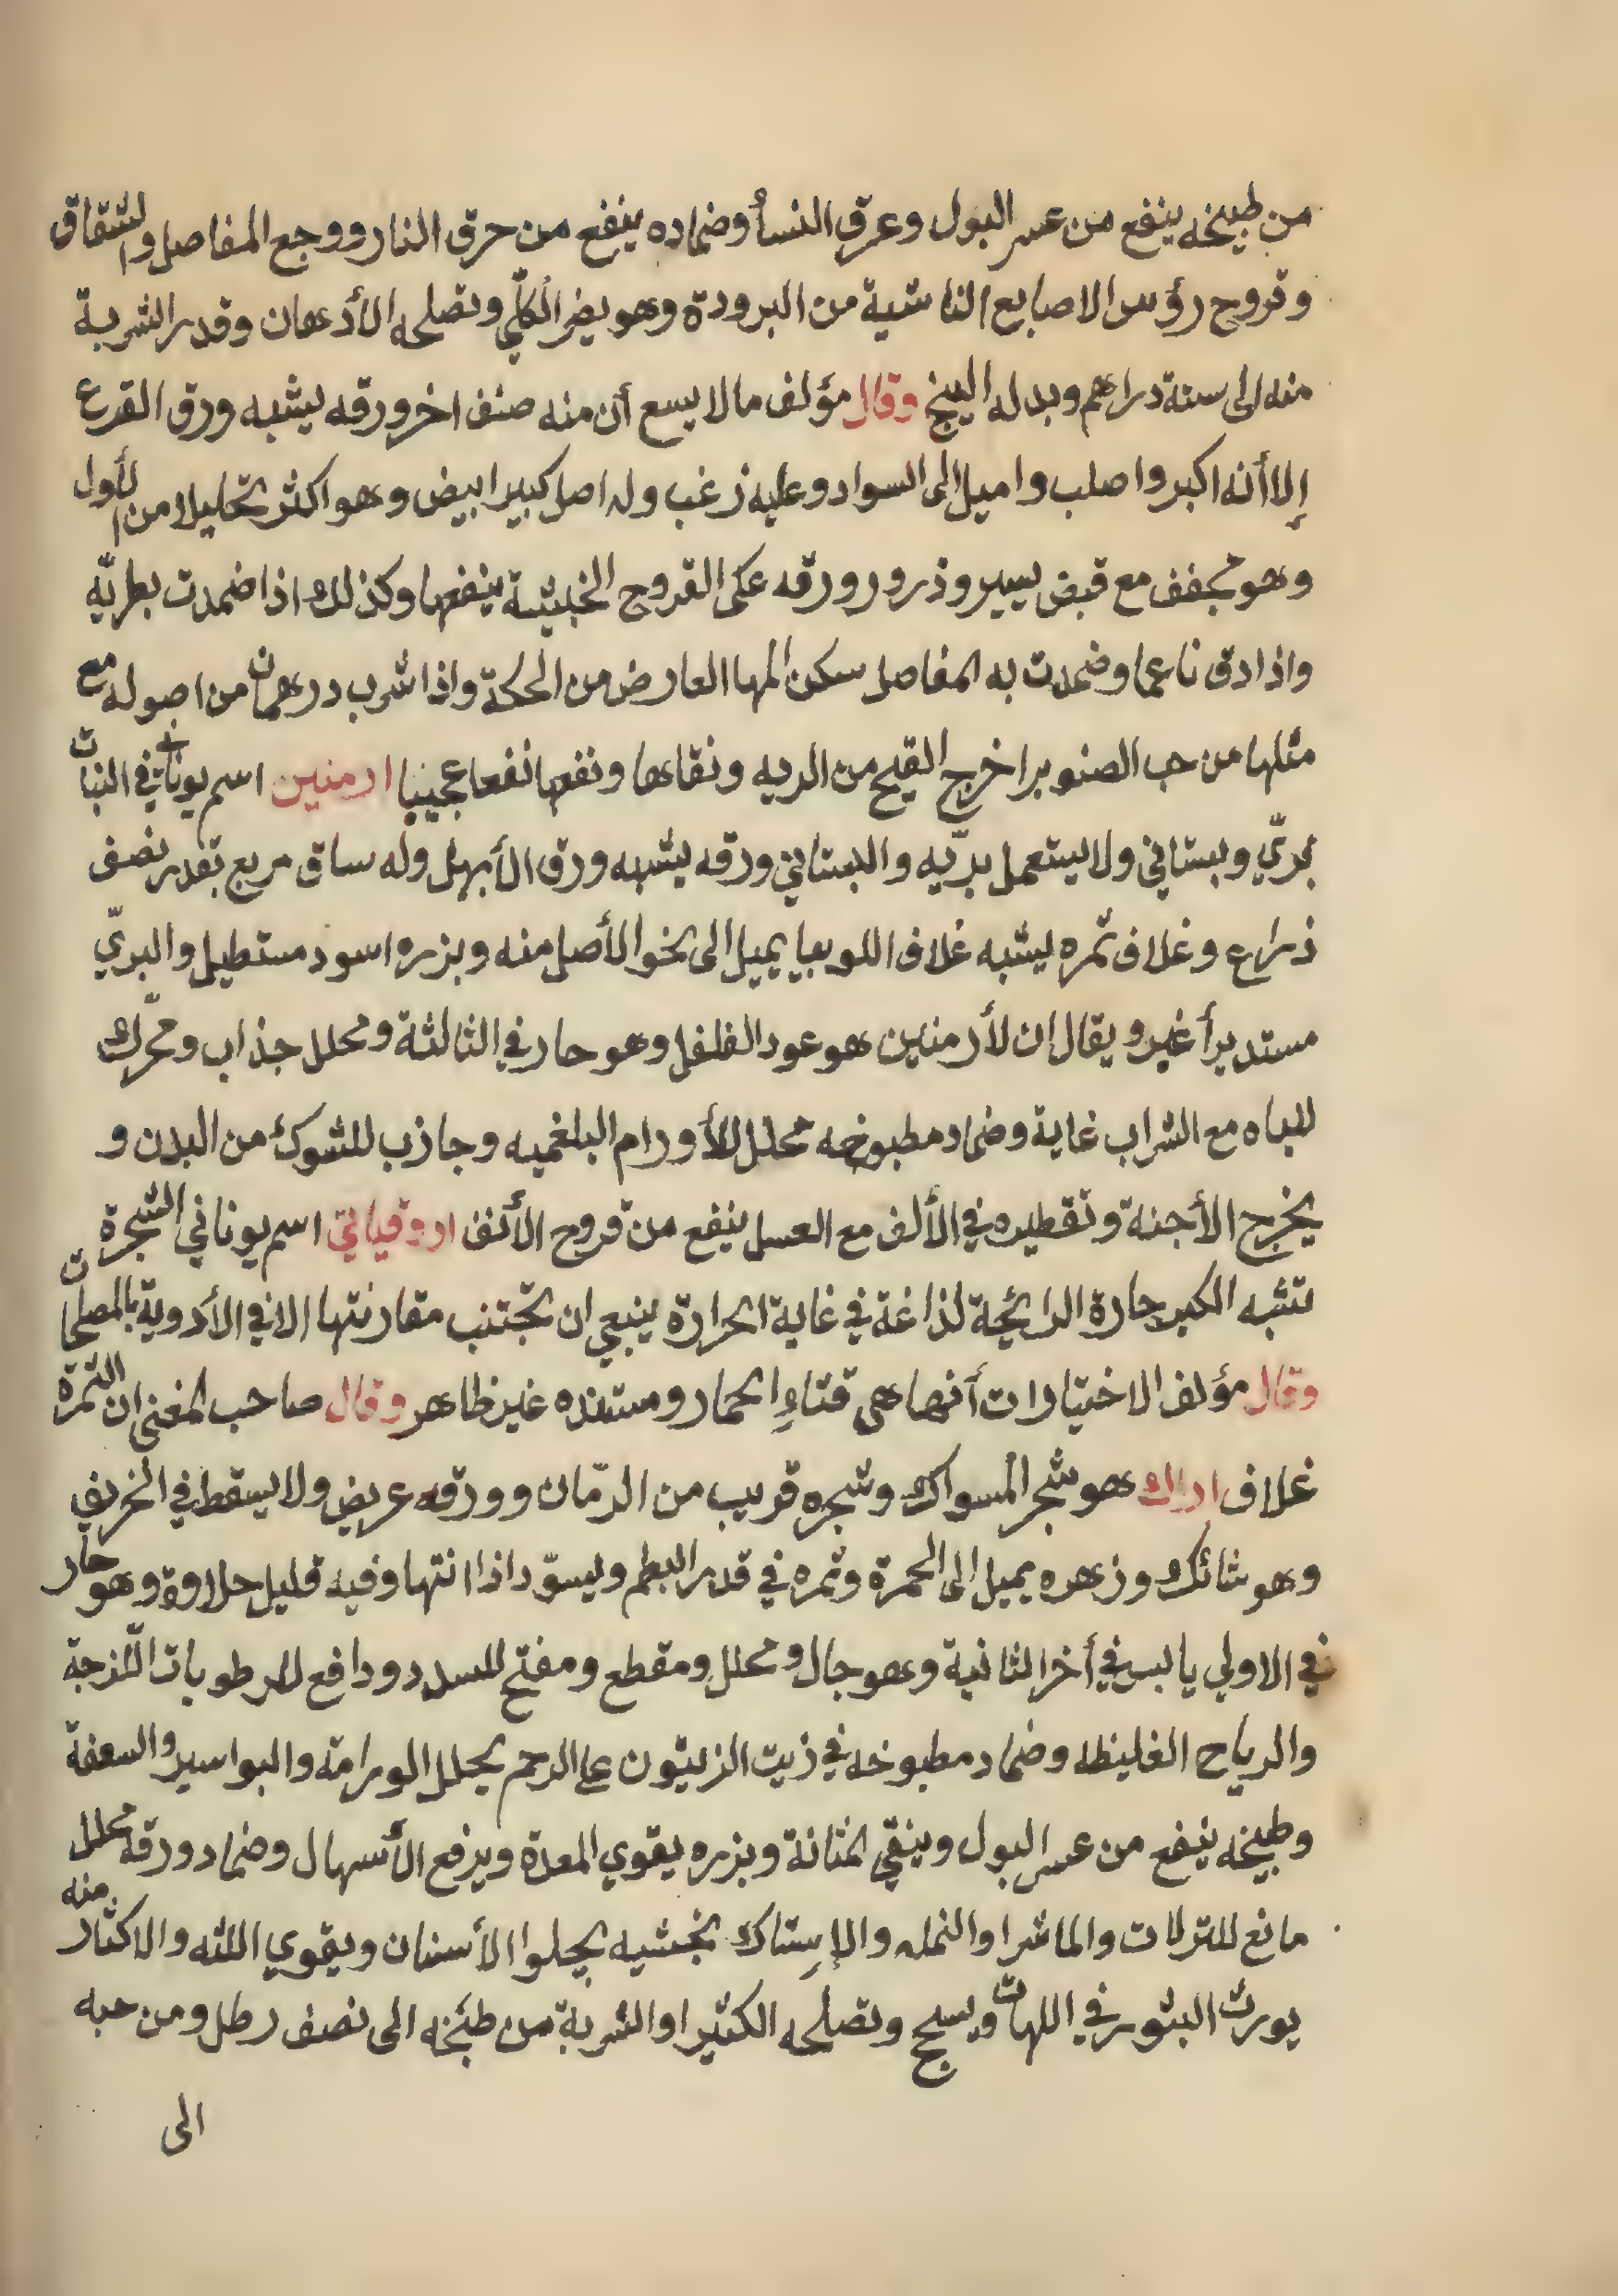 من طبيخه ينفع من عسر البول وعرق النسأ وضماده ينفع من حرق النار ووجع المفاصل والشقاق
وقروح رؤس الاصابع الناشية من البرودة وهو يضر الكلّي وتصلحه الأدهان وقدر الشربة
منه الى ستة دراهم وبدله البنج وقال مؤلف مالا يسع أن منه صنف اخر ورقه يشبه ورق القرع
إلا أنه اكبر واصلب واميل الى السواد وعليه زغب وله اصل كبير ابيض وهو اكثر تحليلا من الأول
وهو مجفف مع قبض يسير وذرور ورقه على القروح الخبيثة ينفعها وكذلك اذا ضمدت بطريّه
واذا دق ناعما وضمدت به المفاصل سكن المها العارض من الحكة واذا شرب درهمان من اصوله مع
مثلها من حب الصنوبر اخرج القيح من الريه ونقاها ونفعها نفعا عجيبا ارمنين اسم يوناني في النبات
برّي وبستاني ولا يستعمل برّيه والبستاني ورقه يشبه ورق الأبهل وله ساق مربع بقدر نصف
ذراع وغلاف ثمره يشبه غلاف اللوبيا يميل الى نحو الأصل منه وبزره اسود مستطيل والبريّ
مستدير أغبر ويقال ان لأرمنين هو عود الفلفل وهو حار في الثالثة ومحلل جذاب ومحّرك
للباه مع الشراب غاية وضماد مطبوخه محلل للأورام البلغميه وجاذب للشوك من البدن و
يخرج الأجنة وتقطيره في الألف مع العسل ينفع من قروح الأنف اروقياني اسم يوناني الشجرة
تشبه الكبر حارة الرائحة لذاغة في غاية الحرارة ينبعي ان تجتنب مقارنتها الا في الأدوية بالمصلحات
وقال مؤلف الاختيارات أنها هي قتاءِ الحمار ومستنده غير ظاهر وقال صاحب المغنى ان الثمرة
غلاف اراك هو شجر المسواك وشجره قريب من الرّمان وورقه عريض ولا يسقط في الخريف
وهو شائك وزهره يميل الى الحمرة وثمره في قدر البطم ويسوّد اذا انتها وفيه قليل حلاوة وهو حار
في الاولي يابس في أخر الثانية وهو جال ومحلل ومقطع ومفتح للسدد ودافع للرطوبات اللّزجة
والرياح الغليظه وضماد مطبوخه في زيت الزيتون على الرحم يحلل الورامة والبواسير والسعفة
وطبيخه ينفع من عسر البول وينقي المثانة وبزره يقوي المعدة ويرفع الأسهال وضماد ورقه محلل
مانع للنزلات والماشرا والنمله والإستاك بخشبه يجلوا الأسنان ويقوي اللثه والاكثار منه
يورث البثور في اللهات ويسحج وتصلحه الكثيرا والشربة من طبخه الى نصف رطل ومن حبه
الى